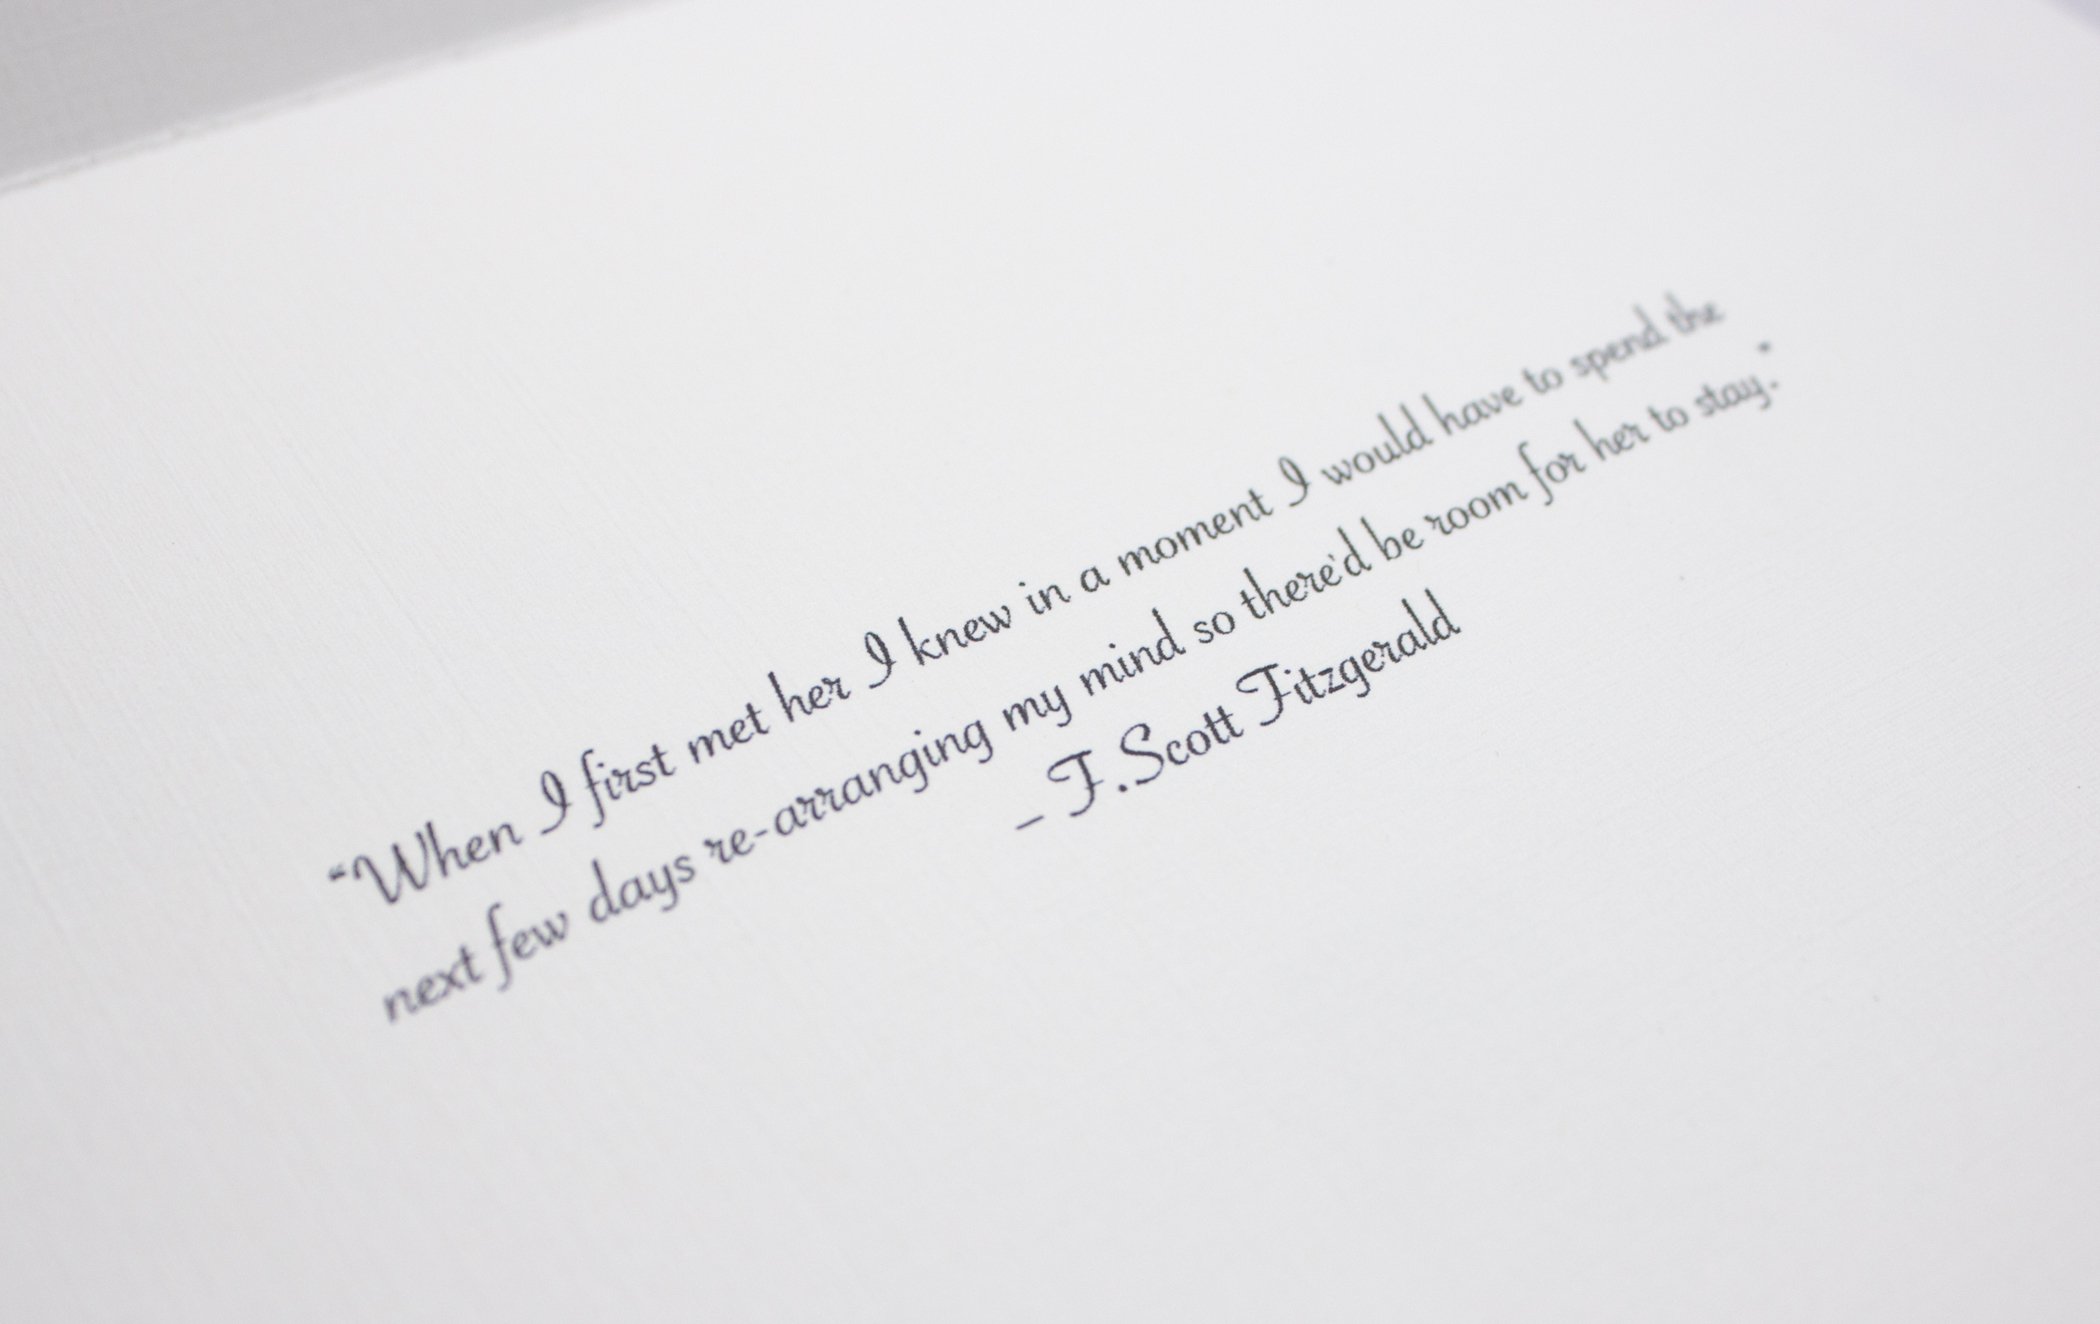 “When I first met her I knew in a moment I would have to spend the
next few days re-arranging my mind so there'd be room for her to stay.”
– F.Scott Fitzgerald